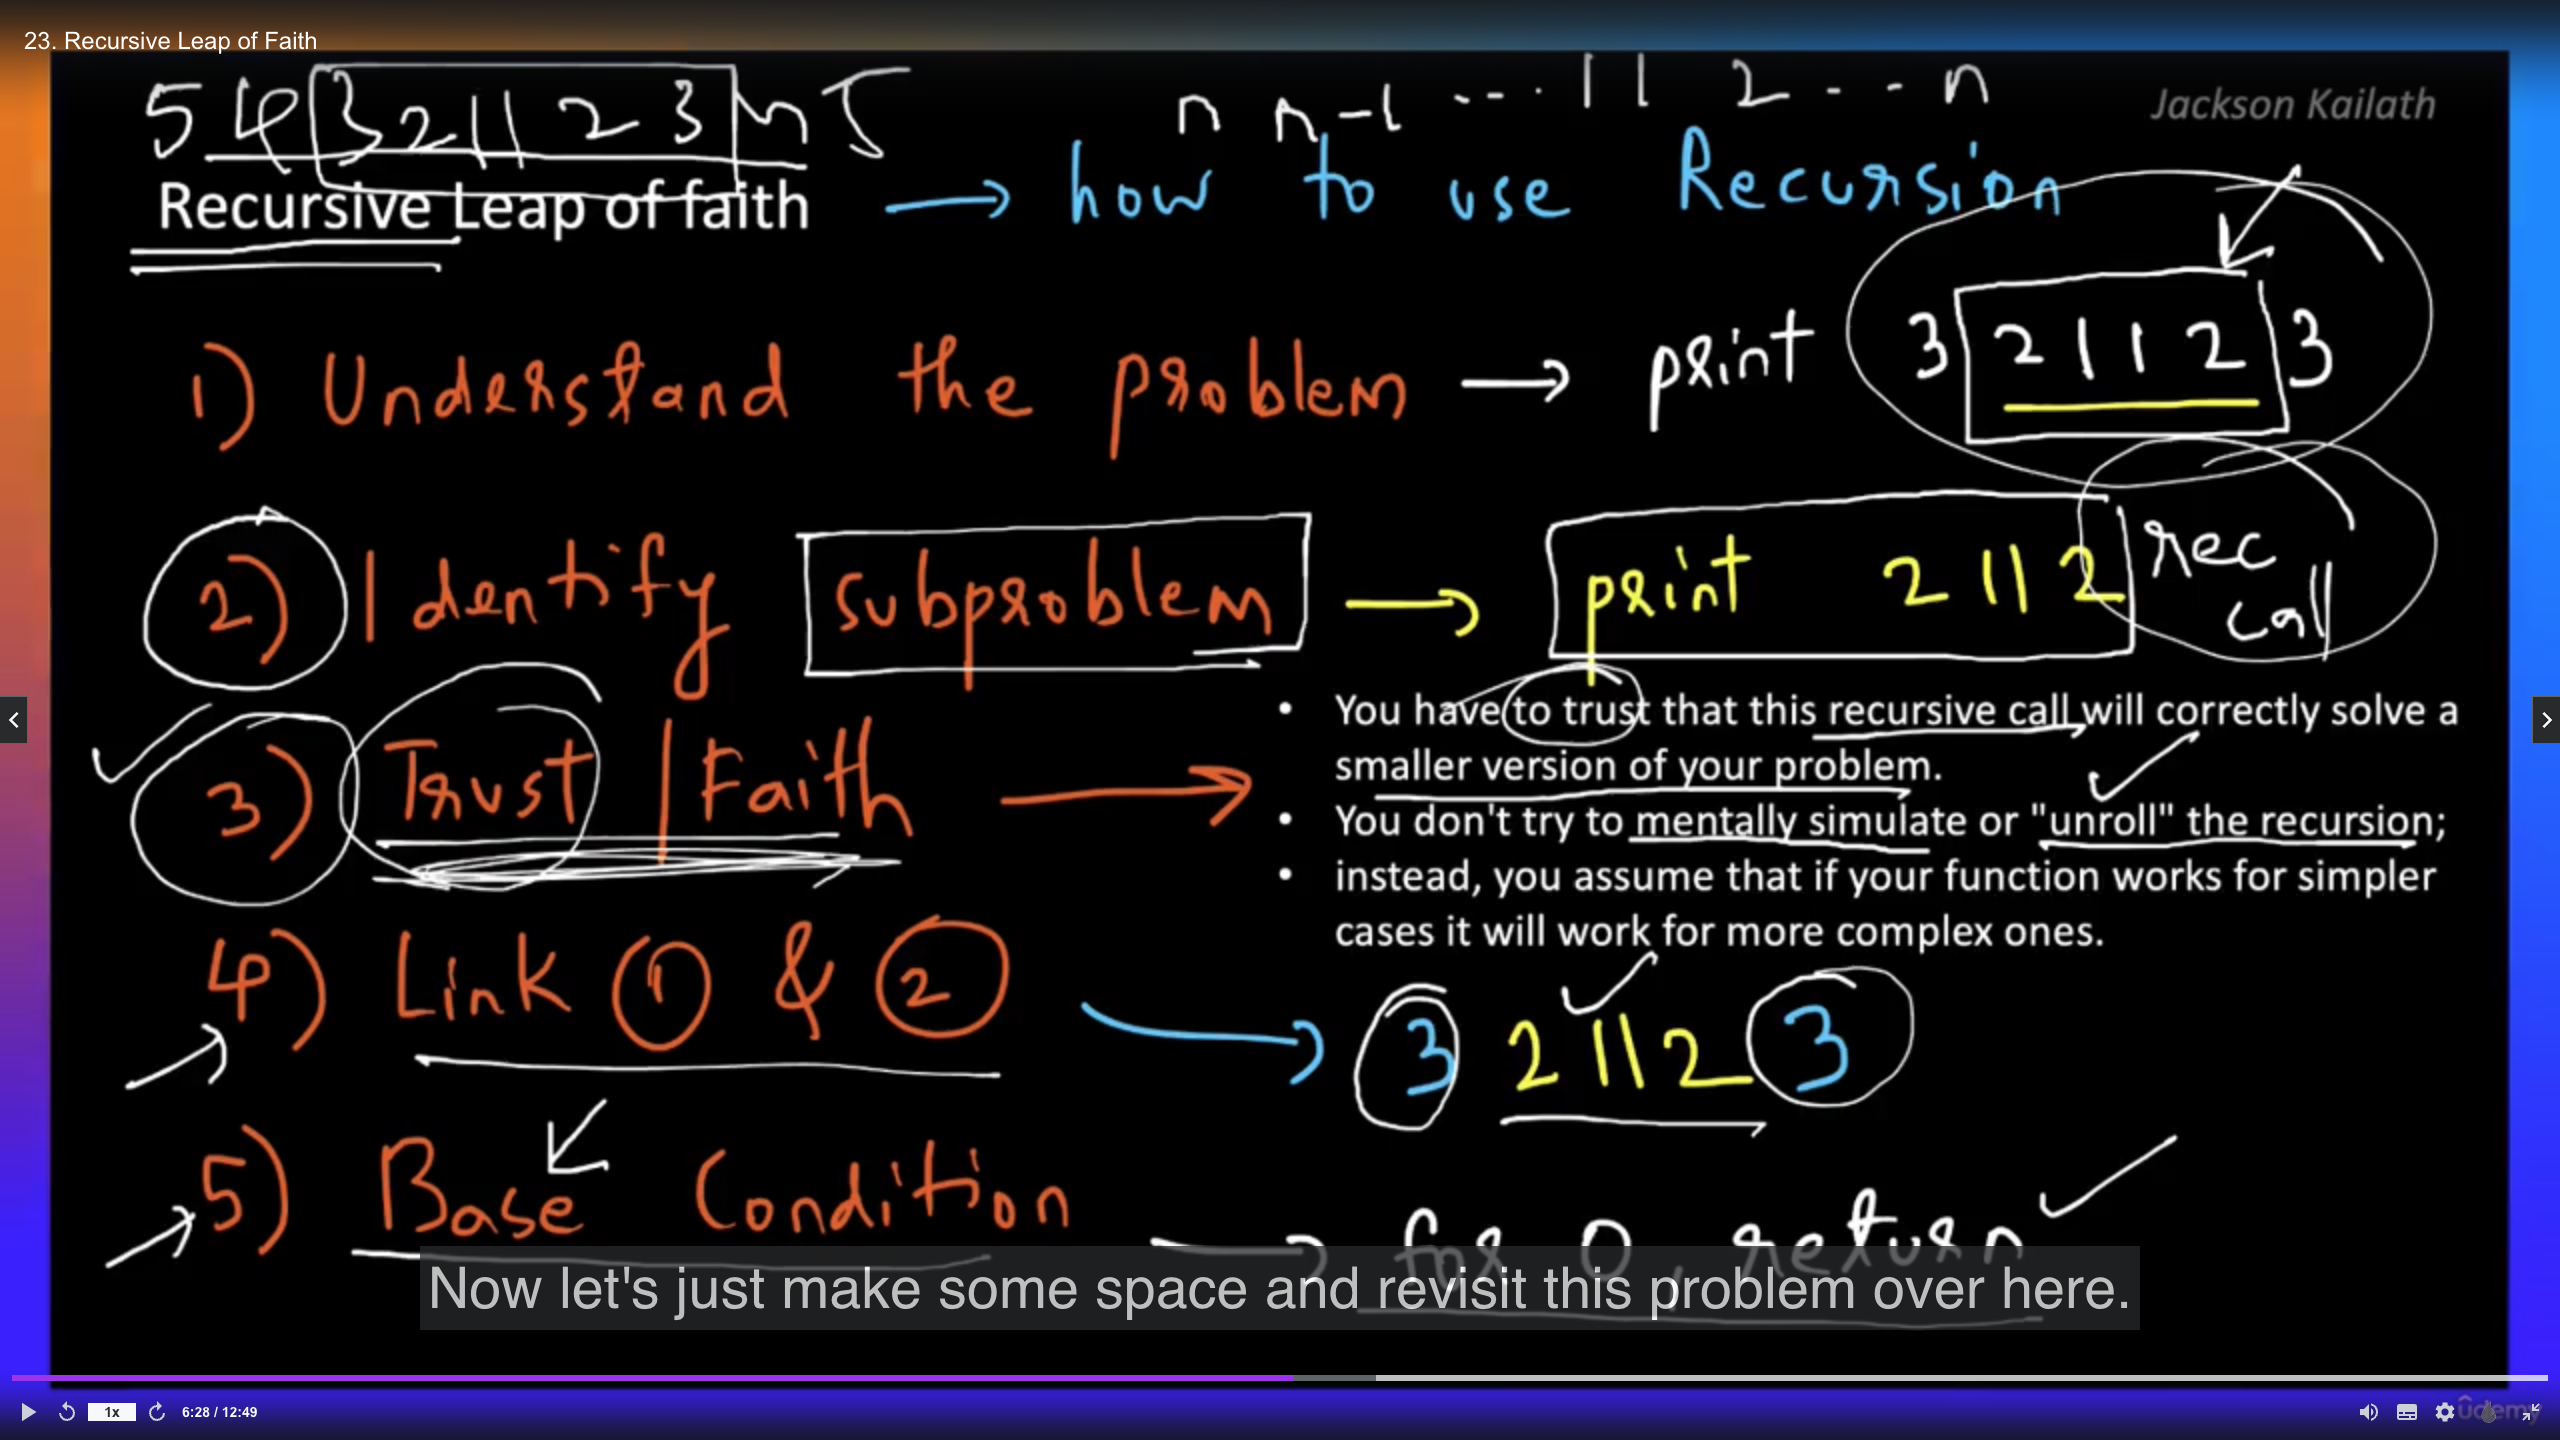 23. Recursive Leap of Faith
5 4 3 2 1 1 2 3 4 5
n n-1 ---. 1 1 2 - - - n
Jackson Kailath
Recursive Leap of faith → how to use Recursion
1) Understand the problem → print 3 2 1 1 2 3
2) Identify subproblem → print 2 1 1 2 rec
call
3) Trust / Faith →
• You have to trust that this recursive call will correctly solve a
smaller version of your problem.
• You don't try to mentally simulate or "unroll" the recursion;
• instead, you assume that if your function works for simpler
cases it will work for more complex ones.
4) Link 1 & 2 → 3 2 1 1 2 3
5) Base Condition → for 0, return
Now let's just make some space and revisit this problem over here.
1x
6:28 / 12:49
ûdemy